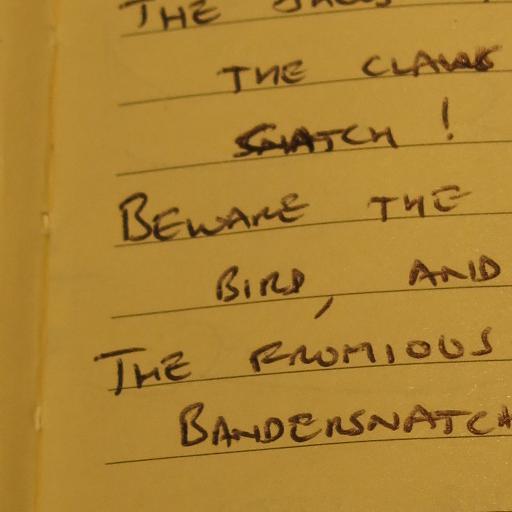 THE
THE CLAWS
SNATCH!
BEWARE THE
BIRD, AND
THE FRUMIOUS
BANDERSNATCH